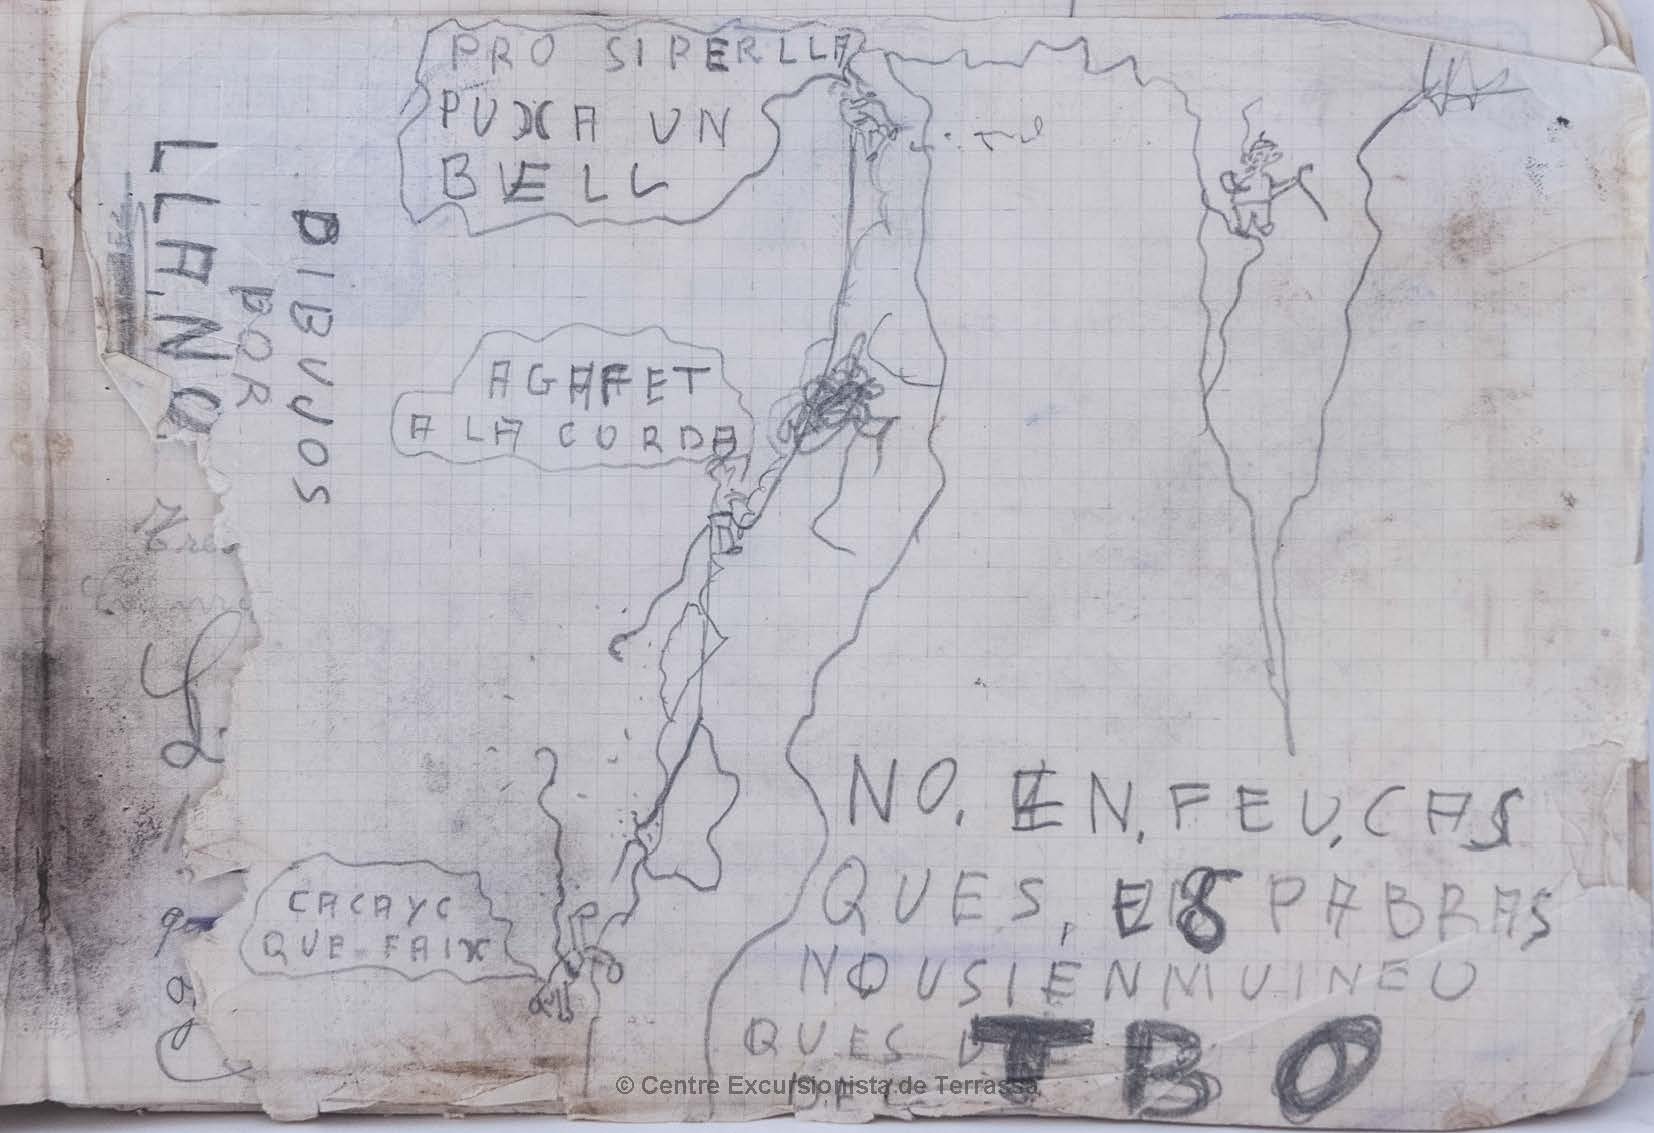 PRO SIPERLLA
PUXA UN
BVELL
DIBUJOS
POR
LLANO
AGAFET
A LA CORDA
CACAYC
QUE FAIX
NO, EN, FEU, CAS
QUES, ES PABRAS
NOUSIENMUINEU
QUES
TBO
© Centre Excursionista de Terrassa